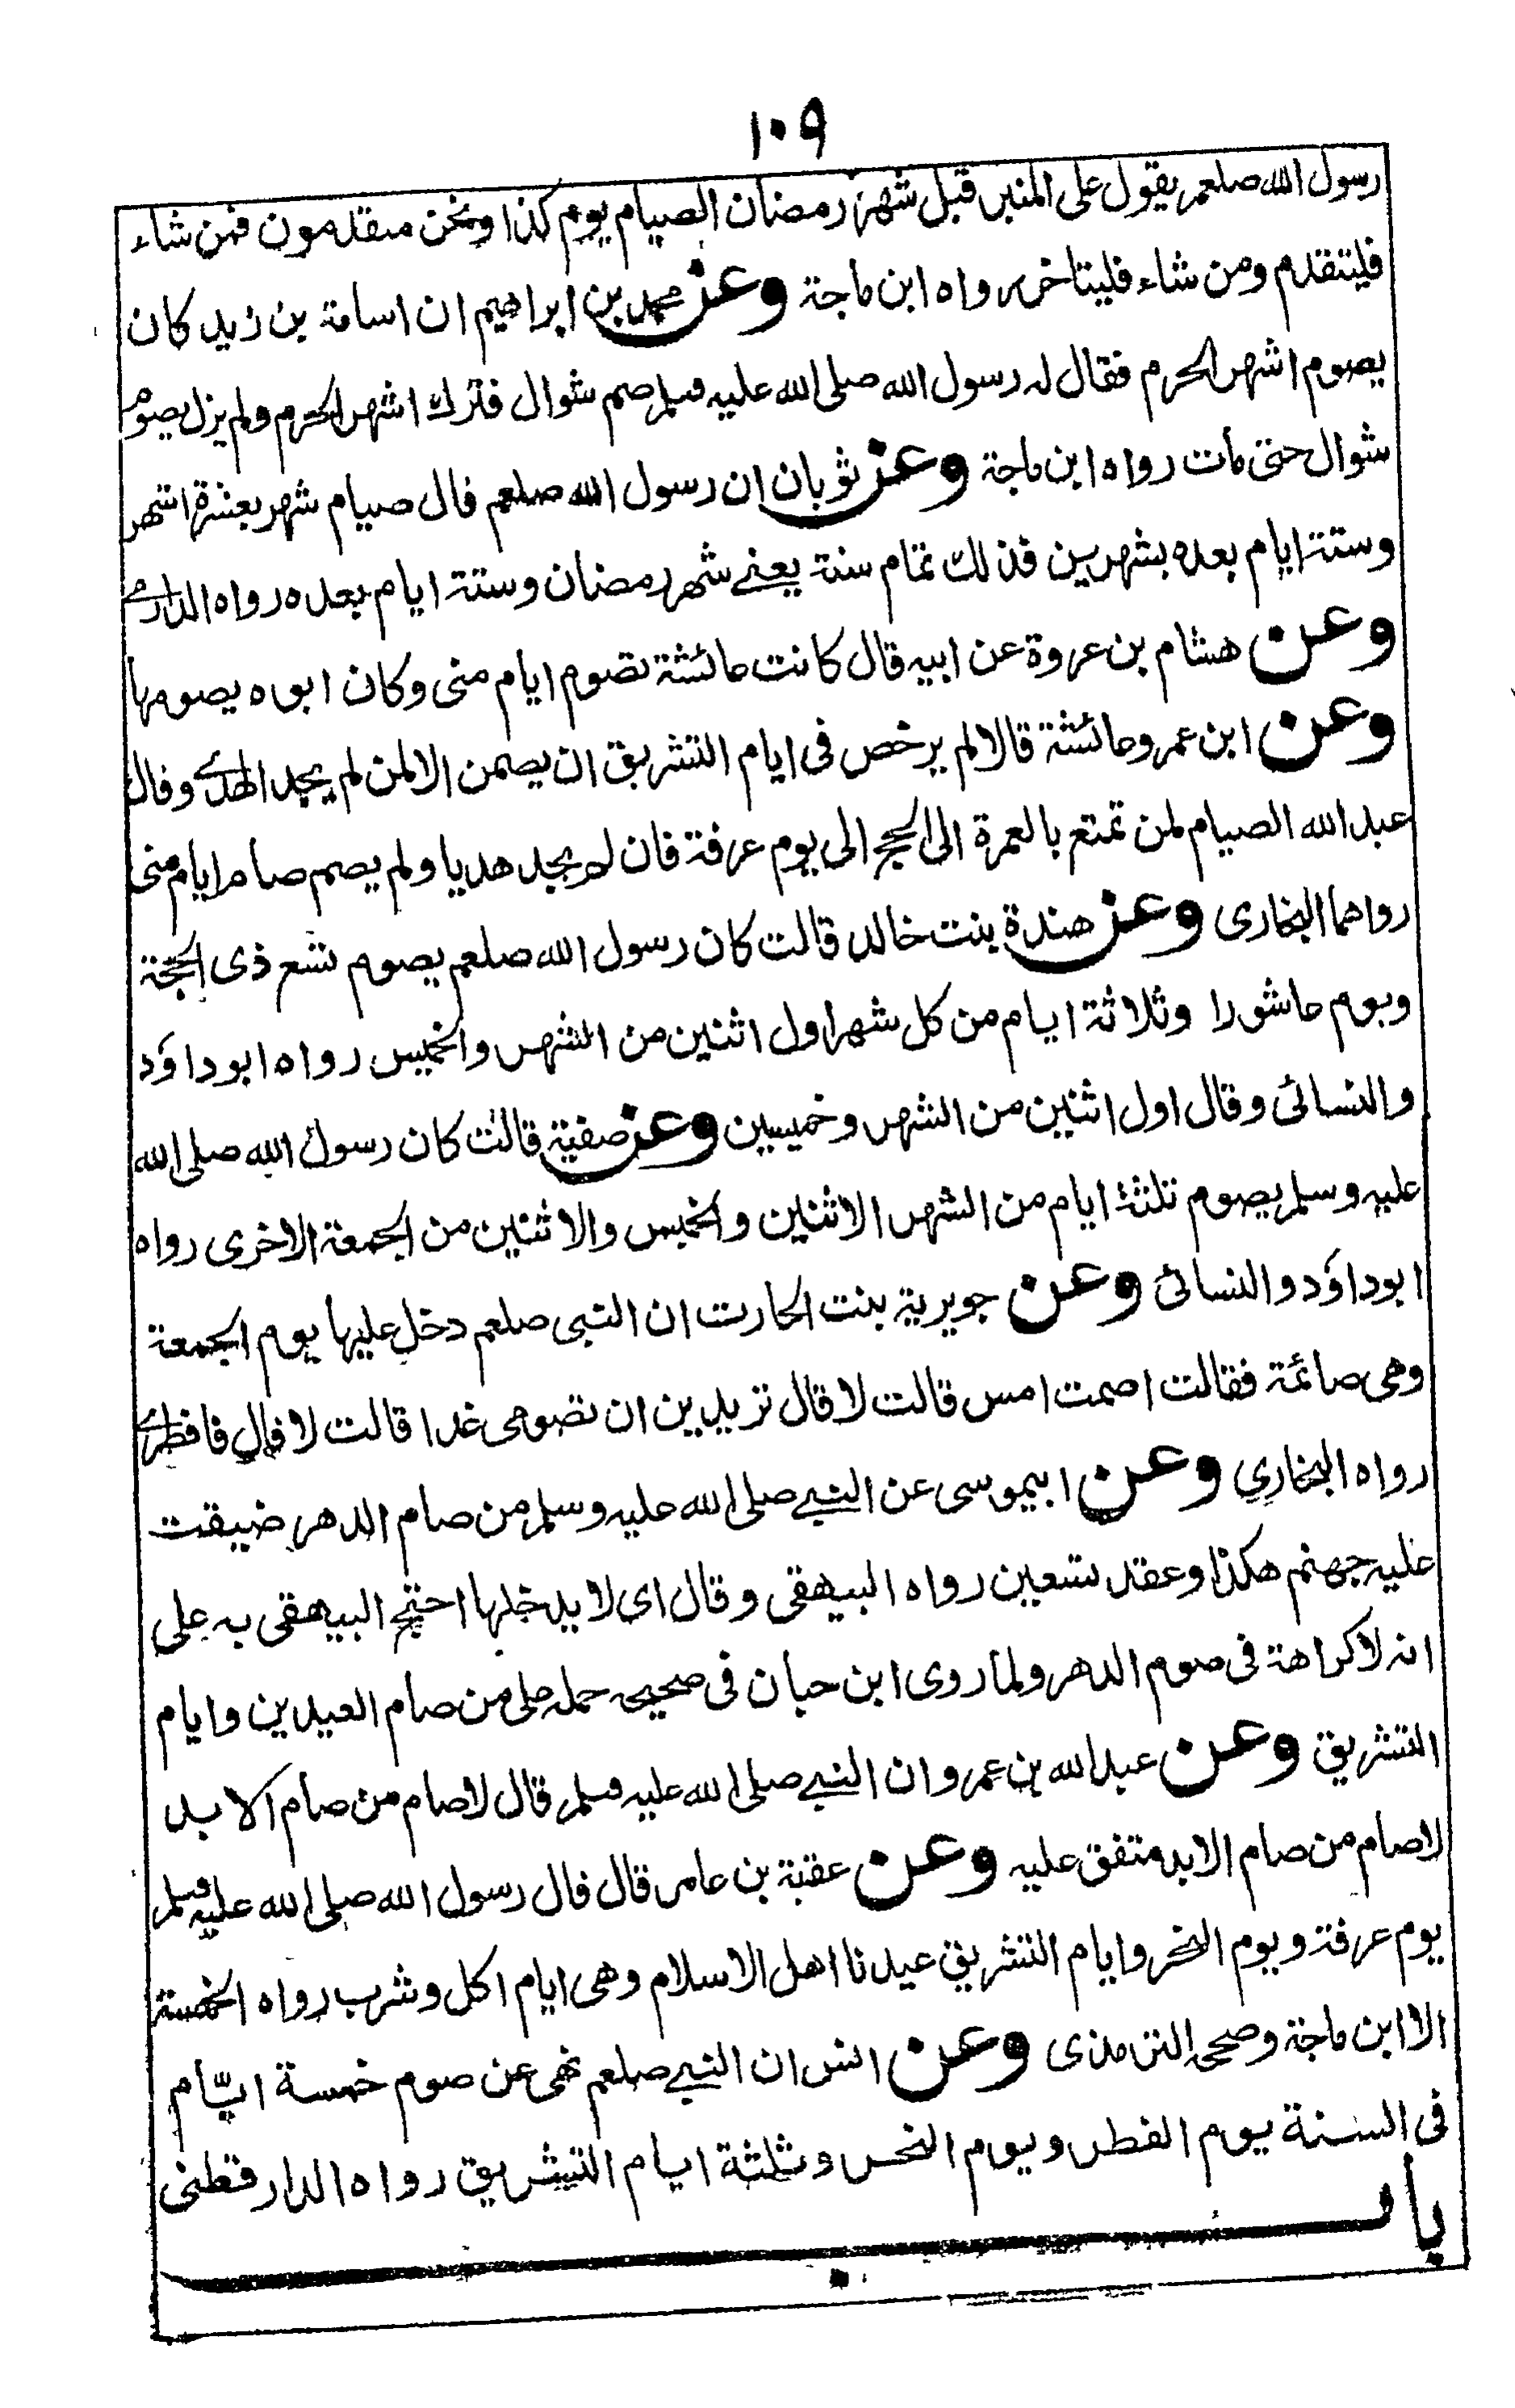 ١٠٩
رسول الله صلعم يقول على المنبر قبل شهر رمضان الصيام يوم كذا ونحن متقدمون فمن شاء
فليتقدم ومن شاء فليتاخر رواه ابن ماجة وعن محمد بن ابراهيم ان اسامة بن زيد كان
يصوم اشهر الحرم فقال له رسول الله صلى الله عليه وسلم صم شوال فترك اشهر الحرم ولم يزل يصوم
شوال حتى مات رواه ابن ماجة وعن ثوبان ان رسول الله صلعم قال صيام شهر بعشرة اشهر
وستة ايام بعده بشهرين فذلك تمام سنة يعنے شهر رمضان وستة ايام بعده رواه الدارمے
وعن هشام بن عروة عن ابيه قال كانت عائشة تصوم ايام منى وكان ابوه يصومها
وعن ابن عمر وعائشة قالا لم يرخص فى ايام التشريق ان يصمن الا لمن لم يجد الهدے وقال
عبد الله الصيام لمن تمتع بالعمرة الى الحج الى يوم عرفة فان لم يجد هديا ولم يصم صام ايام منى
رواهما البخارى وعن هندة بنت خالد قالت كان رسول الله صلعم يصوم تسع ذى الحجة
ويوم عاشورا وثلاثة ايام من كل شهر اول اثنين من الشهر والخميس رواه ابو داؤد
والنسائى وقال اول اثنين من الشهر وخميسين وعن صفية قالت كان رسول الله صلى الله
عليه وسلم يصوم ثلثة ايام من الشهر الاثنين والخميس والاثنين من الجمعة الاخرى رواه
ابوداؤد والنسائى وعن جويرية بنت الحارث ان النبى صلعم دخل عليها يوم الجمعة
وهى صائمة فقالت اصمت امس قالت لا قال تريدين ان تصومى غدا قالت لا قال فافطرے
رواه البخاري وعن ابيموسى عن النبے صلى الله عليه وسلم من صام الدهر ضيقت
عليه جهنم هكذا وعقد تسعين رواه البيهقى وقال اى لا يدخلها احتج البيهقى به على
انه لا كراهة فى صوم الدهر ولما روى ابن حبان فى صحيحه حمله على من صام العيدين وايام
التشريق وعن عبد الله بن عمرو ان النبے صلى الله عليه وسلم قال لا صام من صام الابد
لا صام من صام الابد متفق عليه وعن عقبة بن عامر قال قال رسول الله صلى الله عليه وسلم
يوم عرفة ويوم النحر وايام التشريق عيدنا اهل الاسلام وهى ايام اكل وشرب رواه الخمسة
الا ابن ماجة وصححه الترمذى وعن انس ان النبے صلعم نهى عن صوم خمسة ايّام
فى السنة يوم الفطر ويوم النحر وثلثة ايام التشريق رواه الدارقطنى
باب